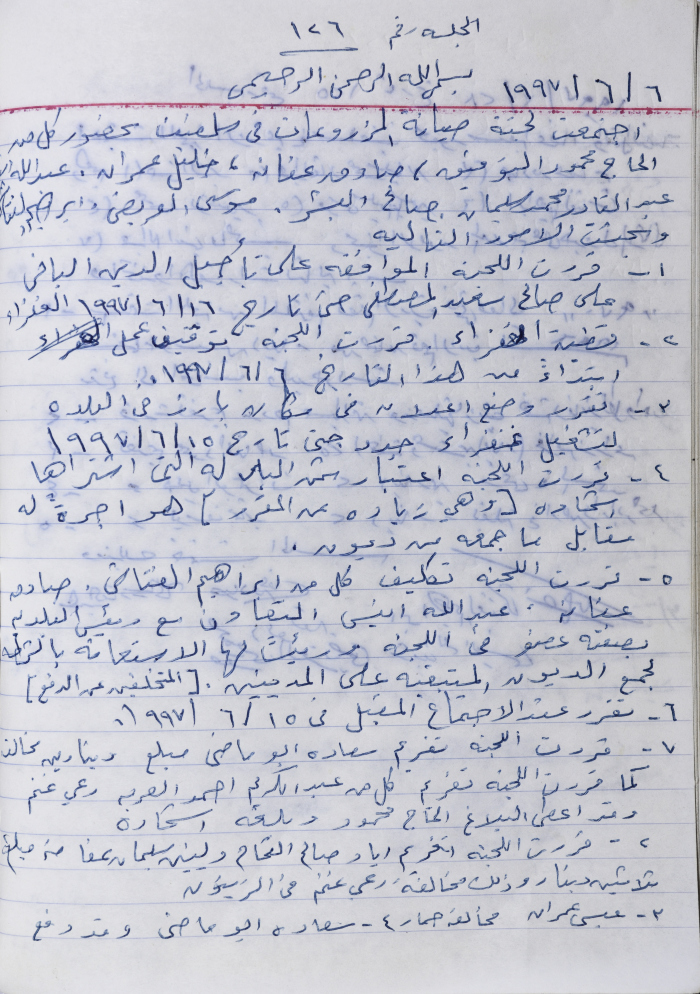 الجلسه رقم ١٢٦
بسم الله الرحمن الرحيم
٦ / ٦ / ١٩٩٧
اجتمعت لجنة صيانة المزروعات في سلفيت بحضور كل من
الحاج محمود ، صادق عفانه ، خليل عمران . عبدالله
عبد القادر محمد سلمان . صالح . موسى . وابراهيم
وبحثت الامور التاليه
١ - قررت اللجنة الموافقه على تأجيل الدين الباقي
على صالح سعيد المصطفى حتى تاريخ ١٦ / ٦ / ١٩٩٧
٢ - قضية الخفراء . قررت اللجنة توقيف عمل الخفراء
ابتداءً من هذا التاريخ ٦ / ٦ / ١٩٩٧ .
٣ - تقرر وضع اعلان في مكان بارز في البلده
لتشغيل خفراء جدد حتى تاريخ ١٥ / ٦ / ١٩٩٧
٤ - قررت اللجنة اعتبار ثمن التي اشتراها
شحاده [ وهي زياده عن المقرر ] هو اجرة له
مقابل ما جمعه من ديون .
٥ - قررت اللجنة تكليف كل من ابراهيم ، صادق
عفانه . عبدالله انيس التعاون مع رئيس البلديه
بصفته عضو في اللجنة الاستعانة بالشرطه
لجمع الديون المتبقيه على المدينين . [ المتخلفين عن الدفع ]
٦ - تقرر عقد الاجتماع المقبل في ١٥ / ٦ / ١٩٩٧ .
٧ - قررت اللجنة تغريم سعاده ابو ماضي مبلغ دينارين
كما قررت اللجنة تغريم كل من عبد الكريم احمد رعي غنم
وقد اعطى البلاغ الحاج محمود شحاده
٢ - قررت اللجنة تغريم اياد صالح سلمان مبلغ
ثلاثين دينار وذلك مخالفة رعي غنم في الزيتون
٣ - عيسى عمران مخالفة حمار ٤ - سعاده ابو ماضي وقد دفع